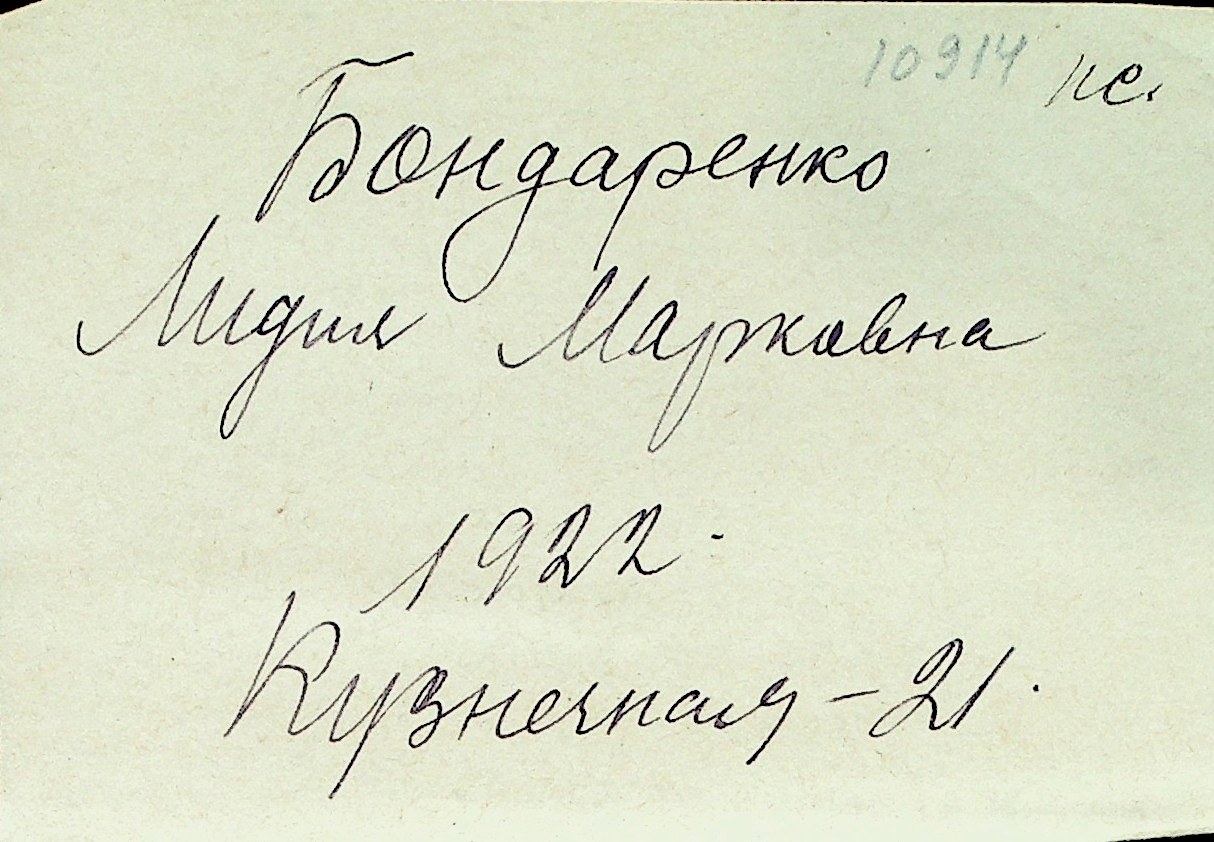 10914 пе.
Бондаренко
Лидия Марковна
1922.
Кузнечная - 21.